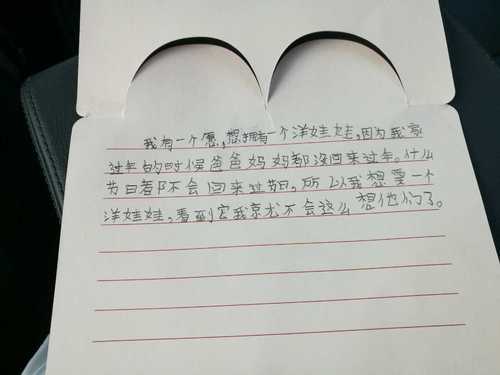 我有一个愿,想拥有一个洋娃娃,因为我
过年的时候爸爸妈妈都没回来过年。什么
节日都不会回来过节日,所以我想要一个
洋娃娃,看到它我就不会这么想他们了。